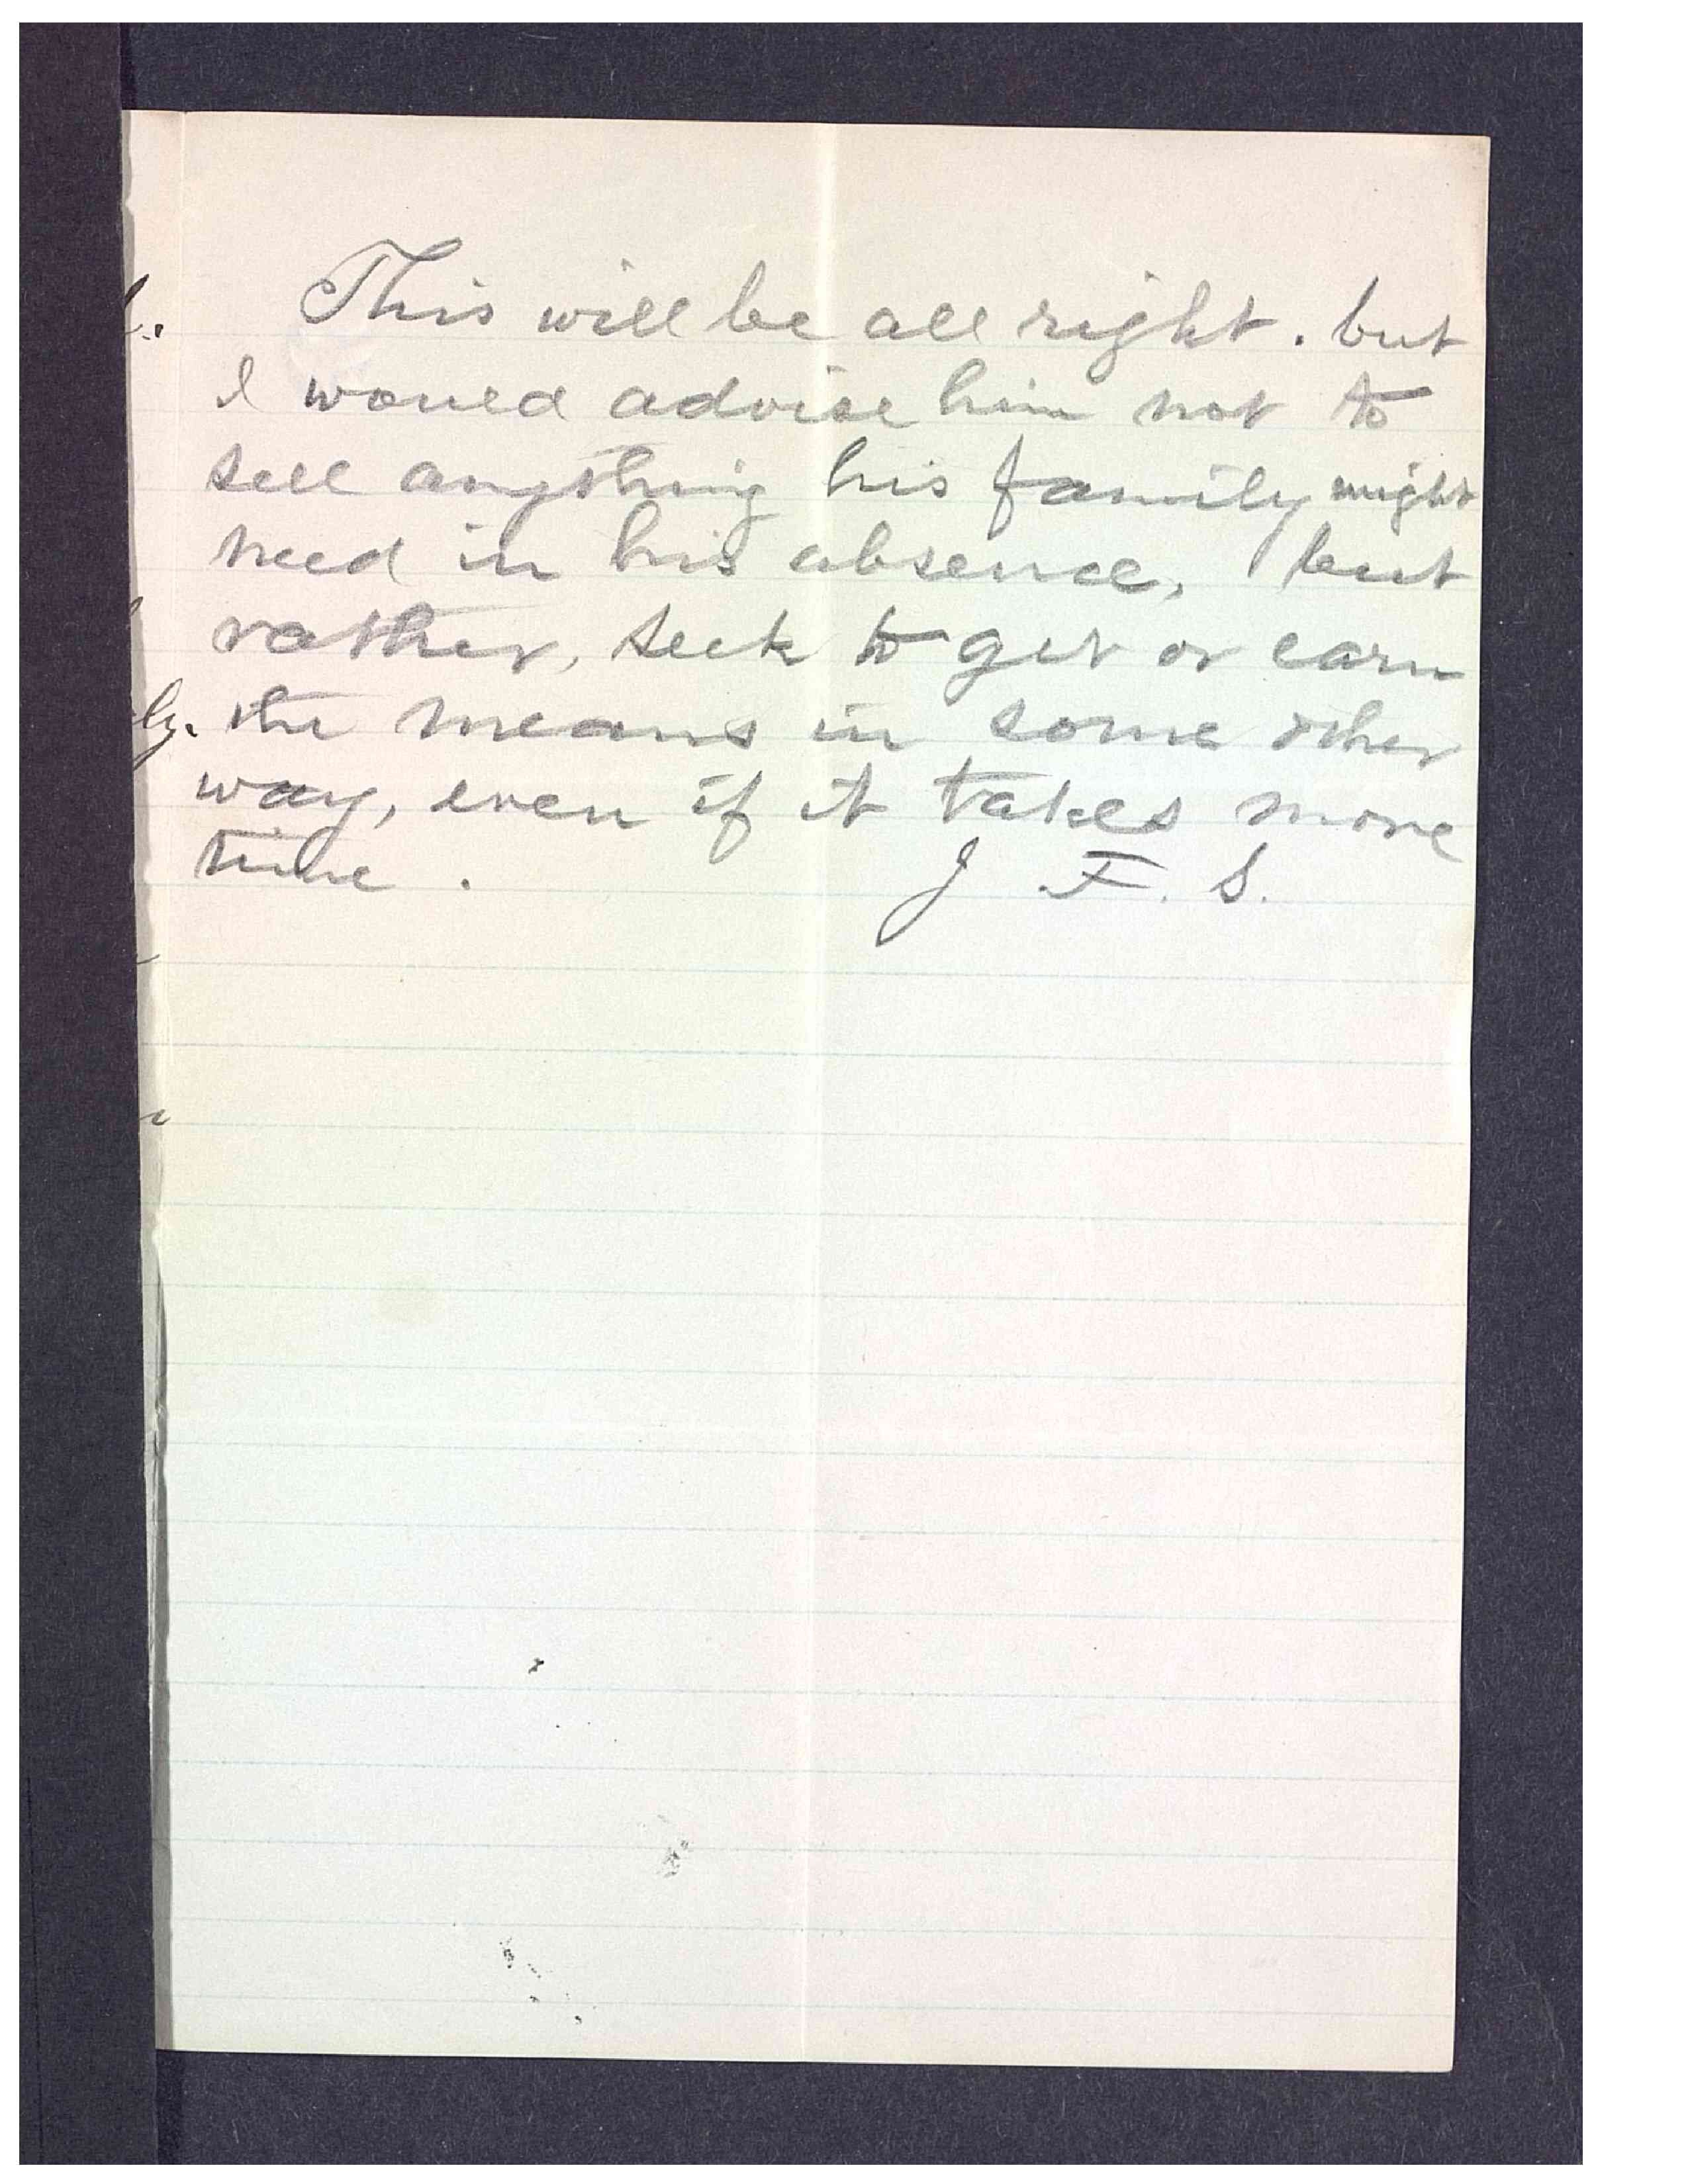 This will be all right. but
I would advise him not to
sell anything his family might
need in his absence, but
rather, seek to get or earn
the means in some other
way, even if it takes more
time.
J F. S.
ly.